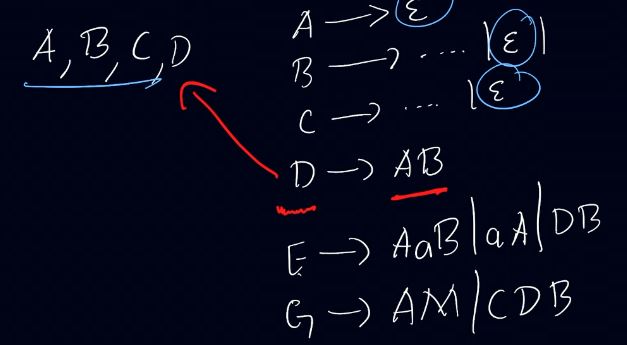 A, B, C, D
A → ε
B → .... | ε |
C → .... | ε
D → AB
E → AaB | aA | DB
G → AM | CDB